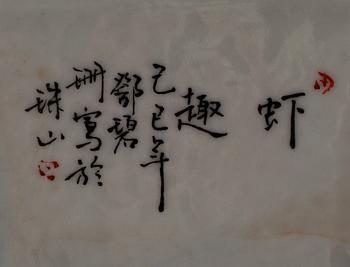 虾趣
己巳年
鄧碧
珊寫於
珠山